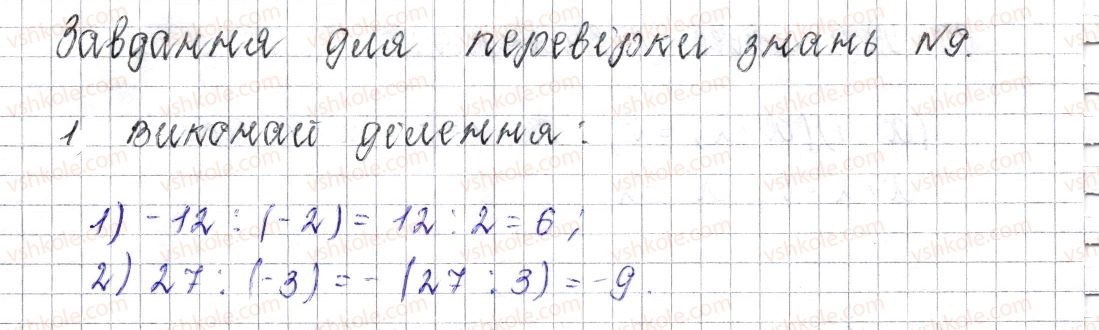 Завдання для перевірки знань №9.
1 Виконай ділення:
1) -12 : (-2) = 12 : 2 = 6;
2) 27 : (-3) = - (27 : 3) = -9.